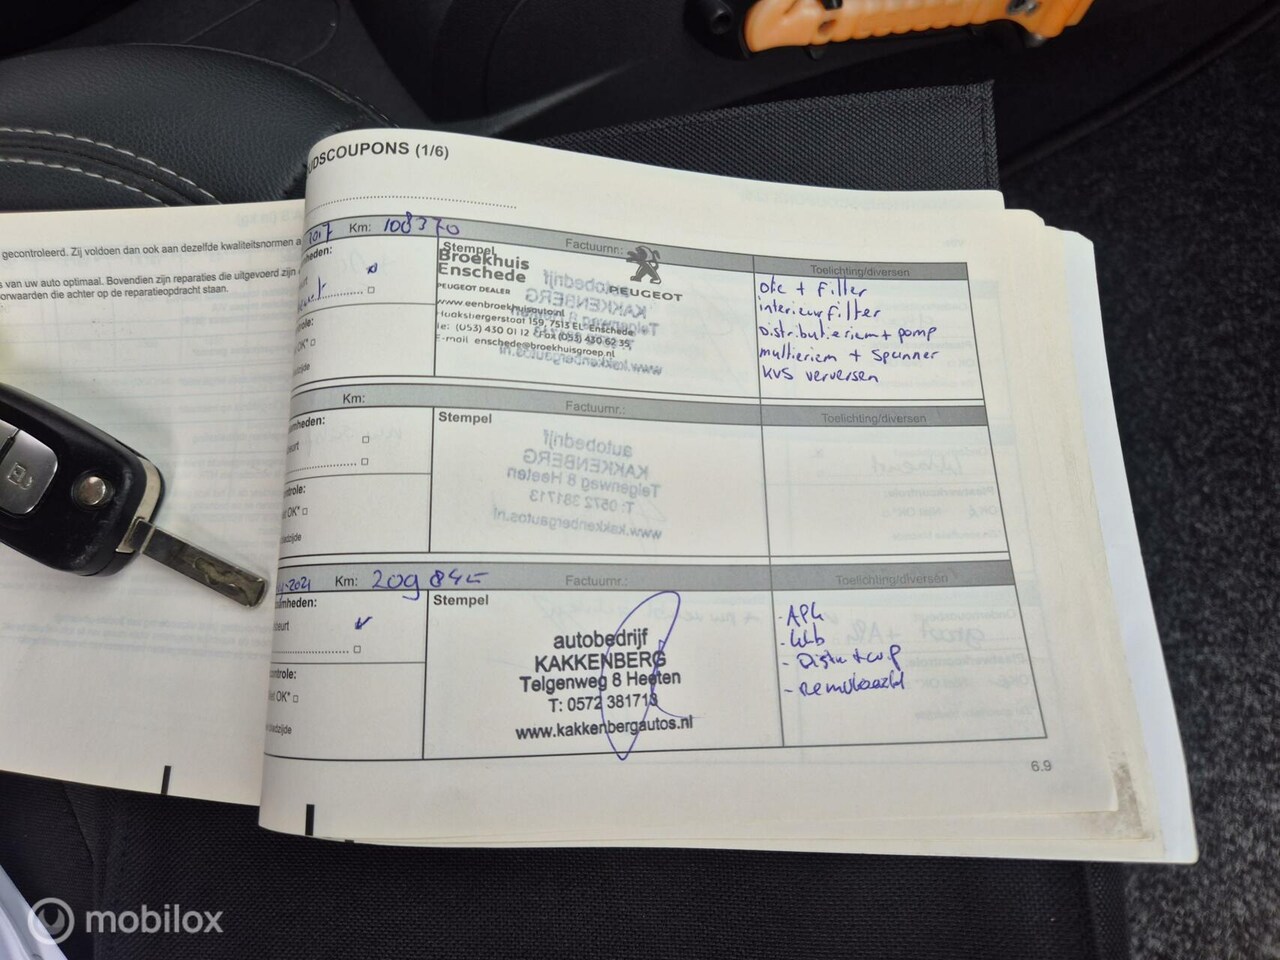 gecontroleerd. Zij voldoen dan ook aan dezelfde kwaliteitsnormen
van uw auto optimaal. Bovendien zijn reparaties die uitgevoerd zijn
orwaarden die achter op de reparatieopdracht staan.
UDSCOUPONS (1/6)
2017 Km: 108370
Stempel
Factuurnr.:
Toelichting/diversen
Broekhuis
Enschede
PEUGEOT DEALER
PEUGEOT
www.eenbroekhuisauto.nl
Haaksbergerstraat 159, 7513 EL Enschede
Tel: (053) 430 01 12 Fax (053) 430 62 35
E-mail enschede@broekhuisgroep.nl
olie + filter
interieurfilter
Distributieriem + pomp
multieriem + Spanner
KVS verversen
mheden:
urt
role:
OK*
dzijde
Km:
Factuurnr.:
Toelichting/diversen
Stempel
mheden:
eurt
ontrole:
et OK*
iedzijde
2021 Km: 209845
Factuurnr.:
Toelichting/diversen
Stempel
aamheden:
sbeurt
controle:
Niet OK*
autobedrijf
KAKKENBERG
Telgenweg 8 Heeten
T: 0572 381713
www.kakkenbergautos.nl
- APK
- Distr + w.p
6.9
mobilox